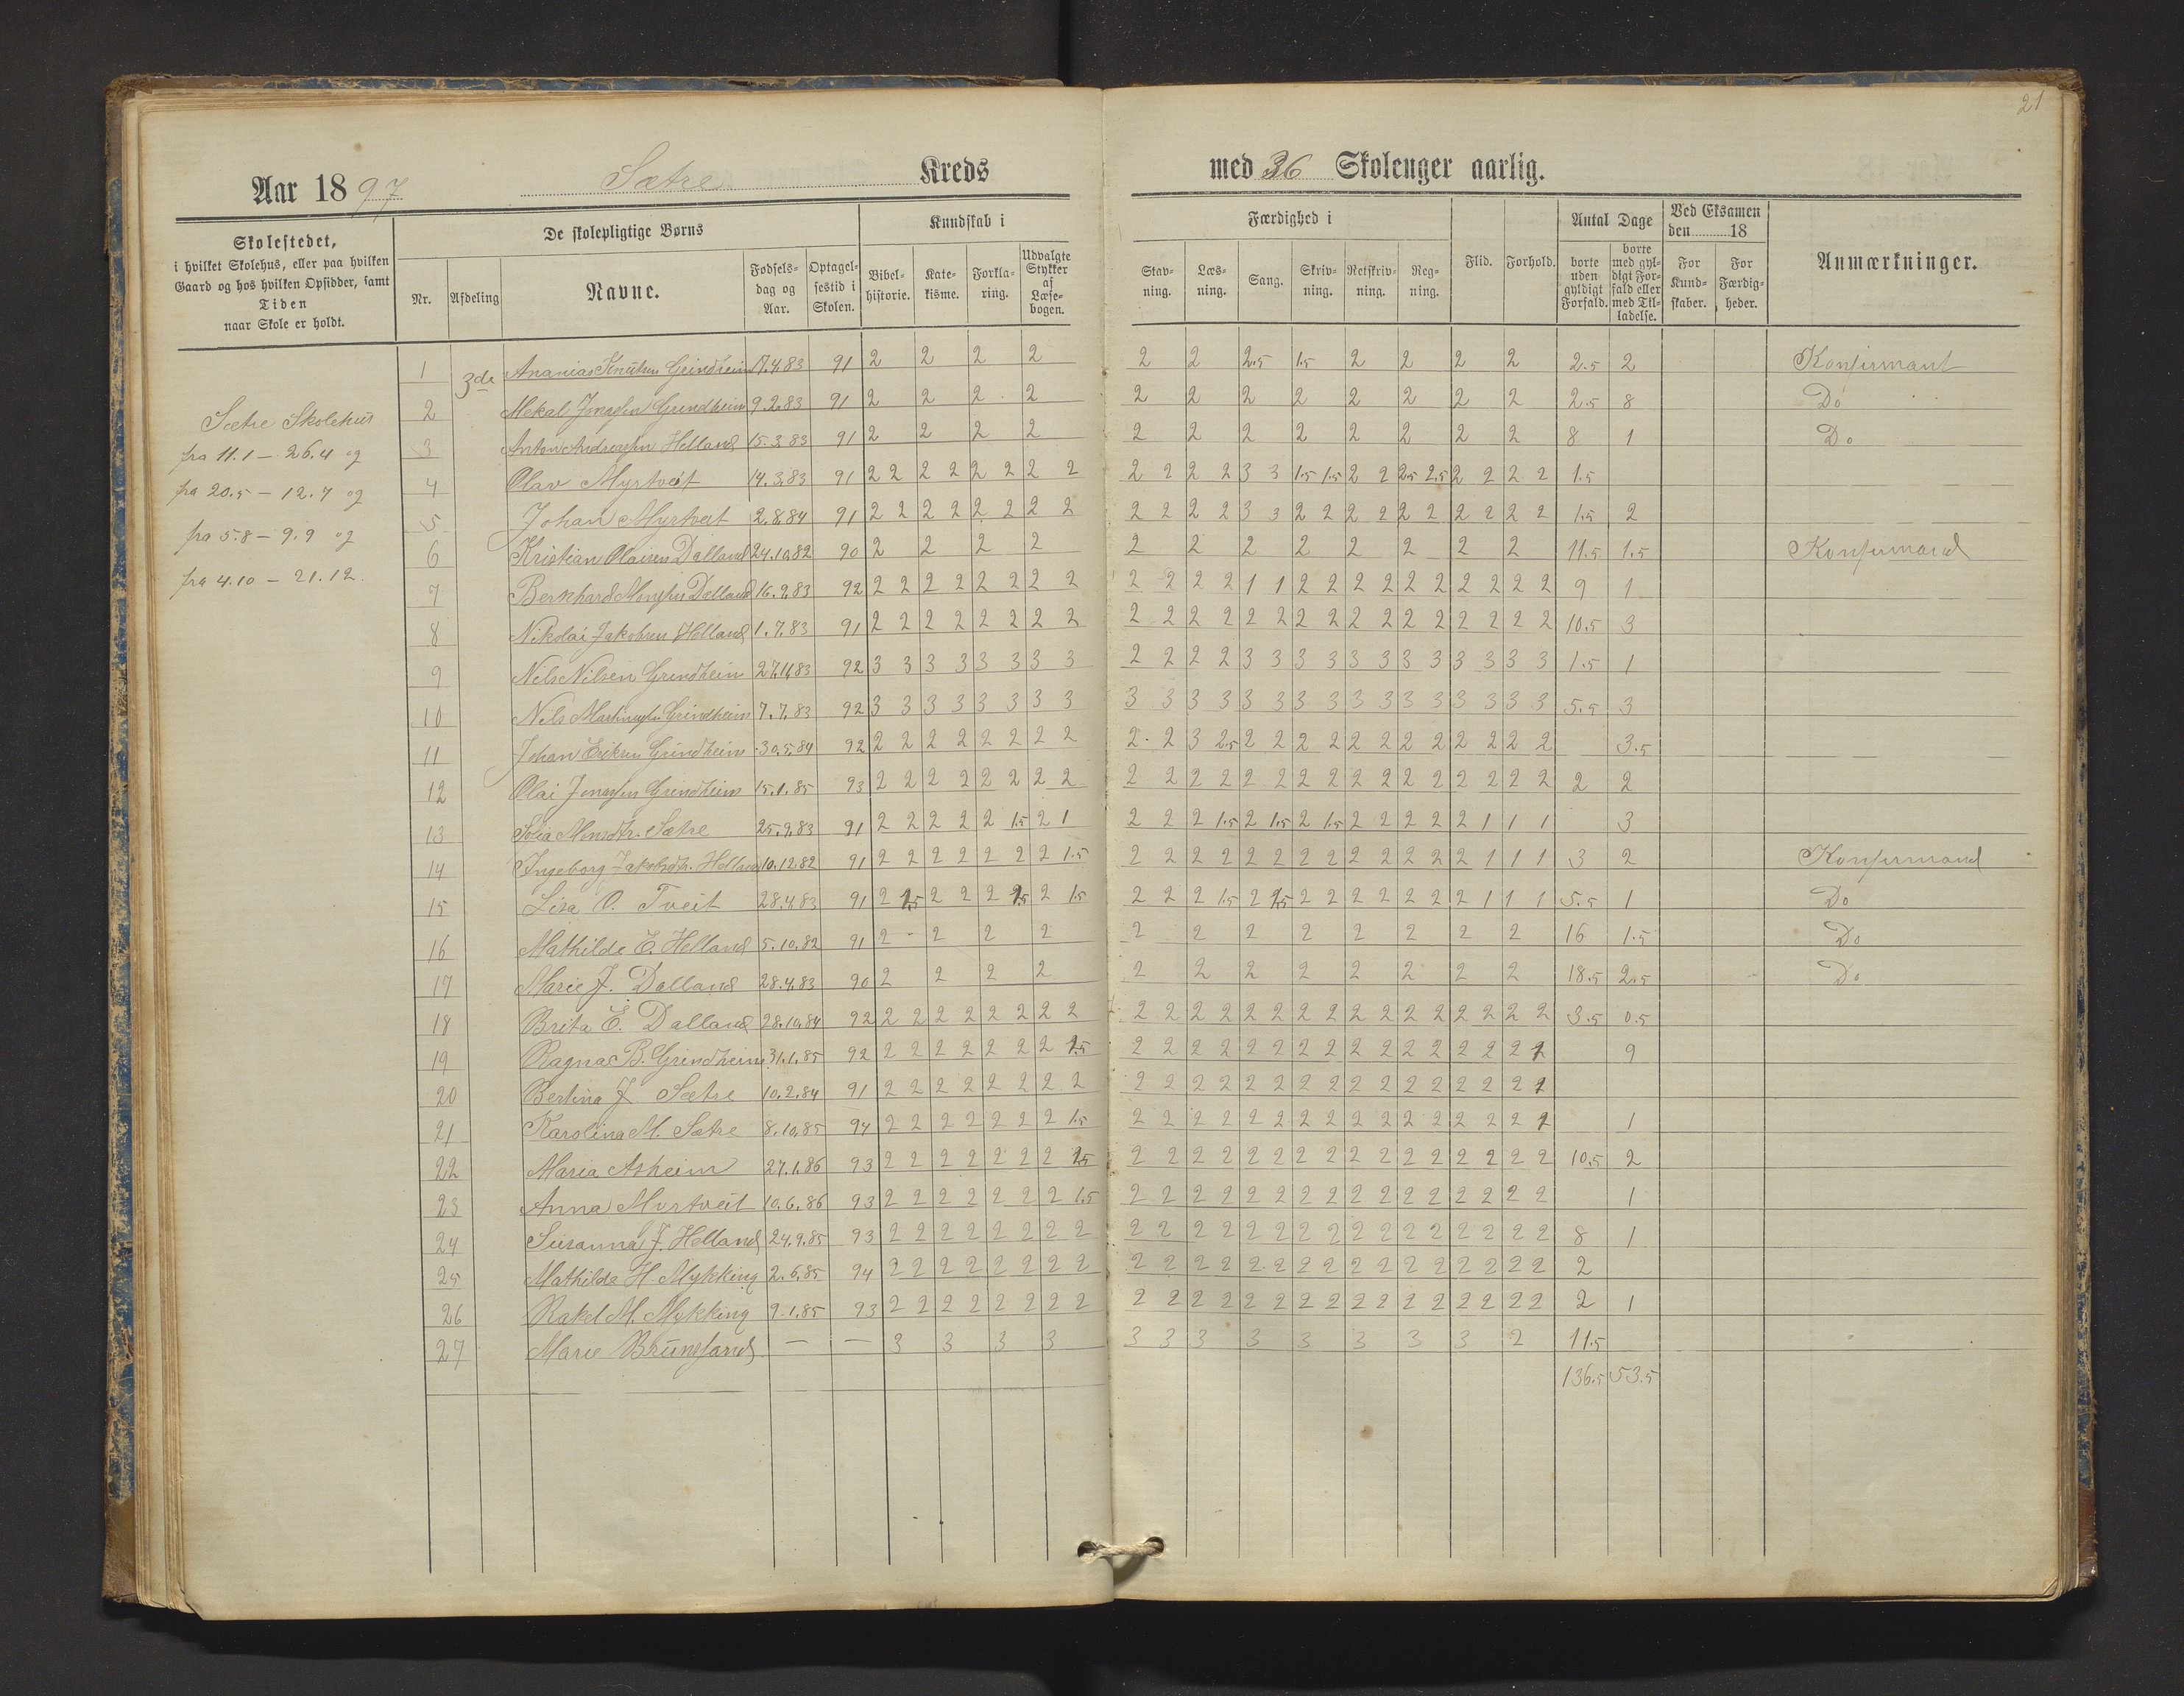 21
Aar 1897 Sætre Kreds med 36 Skoleuger aarlig.
Skolestedet,
i hvilket Skolehus, eller paa hvilken
Gaard og hos hvilken Opsidder, samt
Tiden
naar Skole er holdt.
De skolepligtige Børns
Nr. Afdeling Navne. Fødselsdag og Aar. Optagelsestid i Skolen.
Kundskab i
Bibelhistorie. Katekisme. Forklaring. Udvalgte Stykker af Læsebogen.
Færdighed i
Stavning. Læsning. Sang. Skrivning. Retskrivning. Regning.
Flid. Forhold.
Antal Dage
borte uden gyldigt Forfald. borte med gyldigt Forfald eller med Tilladelse.
Ved Eksamen den 18
For Kundskaber. For Færdigheder.
Anmærkninger.
Sætre Skolehus
fra 11.1 – 26.4 og
fra 20.5 – 12.7 og
fra 5.8 – 9.9 og
fra 4.10 – 21.12.
1 3de Ananias Knutsen Grindheim 17.4.83 91 2 2 2 2 2 2 2.5 1.5 2 2 2 2 2.5 2 Konfirmant
2 Mekal Jonassen Grindheim 9.2.83 91 2 2 2 2 2 2 2 2 2 2 2 2 2.5 8 Do
3 Anton Andreassen Helland 15.3.83 91 2 2 2 2 2 2 2 2 2 2 2 2 8 1 Do
4 Olav Myrtveit 14.3.83 91 2 2 2 2 2 2 2 2 2 2 2 2 3 3 1.5 1.5 2 2 2.5 2.5 2 2 2 2 1.5
5 Johan Myrtveit 2.8.84 91 2 2 2 2 2 2 2 2 2 2 2 2 3 3 2 2 2 2 2 2 2 2 2 2 1.5 2
6 Kristian Olaisen Dalland 24.10.82 90 2 2 2 2 2 2 2 2 2 2 2 2 11.5 1.5 Konfirmand
7 Bernhard Monssen Dalland 16.9.83 92 2 2 2 2 2 2 2 2 2 2 2 2 1 1 2 2 2 2 2 2 2 2 2 2 9 1
8 Nikolai Jakobsen Helland 1.7.83 91 2 2 2 2 2 2 2 2 2 2 2 2 2 2 2 2 2 2 2 2 2 2 2 2 10.5 3
9 Nels Nilsen Grindheim 27.11.83 92 3 3 3 3 3 3 3 3 2 2 2 2 3 3 3 3 3 3 3 3 3 3 3 3 1.5 1
10 Nils Martinussen Grindheim 7.7.83 92 3 3 3 3 3 3 3 3 3 3 3 3 3 3 3 3 3 3 3 3 3 3 3 3 5.5 3
11 Johan Eriksen Grindheim 30.5.84 92 2 2 2 2 2 2 2 2 2 2 3 2.5 2 2 2 2 2 2 2 2 2 2 2 2 3.5
12 Olai Jonassen Grindheim 15.1.85 93 2 2 2 2 2 2 2 2 2 2 2 2 2 2 2 2 2 2 2 2 2 2 2 2 2 2
13 Sofia Monsdtr. Sætre 25.9.83 91 2 2 2 2 2 1.5 2 1 2 2 2 1.5 2 1.5 2 1.5 2 2 2 2 2 1 1 1 3
14 Ingeborg Jakobsdtr. Helland 10.12.82 91 2 2 2 2 2 2 2 1.5 2 2 2 2 2 2 2 2 2 2 2 2 2 1 1 1 3 2 Konfirmand
15 Lisa O. Tveit 28.4.83 91 2 1.5 2 2 2 1.5 2 1.5 2 2 2 1.5 2 1.5 2 2 2 2 2 2 2 1 1 1 5.5 1 Do
16 Mathilde E. Helland 5.10.82 91 2 2 2 2 2 2 2 2 2 2 2 2 16 1.5 Do
17 Marie J. Dalland 28.4.83 90 2 2 2 2 2 2 2 2 2 2 2 2 18.5 2.5 Do
18 Brita E. Dalland 28.10.84 92 2 2 2 2 2 2 2 2 2 2 2 2 2 2 2 2 2 2 2 2 2 2 2 2 3.5 0.5
19 Ragna B. Grindheim 31.1.85 92 2 2 2 2 2 2 2 1.5 2 2 2 2 2 2 2 2 2 2 2 2 2 2 2 1 9
20 Bertina J. Sætre 10.2.84 91 2 2 2 2 2 2 2 2 2 2 2 2 2 2 2 2 2 2 2 2 2 2 2 1
21 Karolina M. Sætre 8.10.85 94 2 2 2 2 2 2 2 1.5 2 2 2 2 2 2 2 2 2 2 2 2 2 2 2 1 1
22 Maria Asheim 27.1.86 93 2 2 2 2 2 2 2 1.5 2 2 2 2 2 2 2 2 2 2 2 2 2 2 2 2 10.5 2
23 Anna Myrtveit 10.6.86 93 2 2 2 2 2 2 2 1.5 2 2 2 2 2 2 2 2 2 2 2 2 2 2 2 2 1
24 Susanna J. Helland 24.9.85 93 2 2 2 2 2 2 2 2 2 2 2 2 2 2 2 2 2 2 2 2 2 2 2 2 8 1
25 Mathilde H. Mykking 2.6.85 94 2 2 2 2 2 2 2 2 2 2 2 2 2 2 2 2 2 2 2 2 2 2 2 2 2
26 Rakel M. Mykking 9.1.85 93 2 2 2 2 2 2 2 2 2 2 2 2 2 2 2 2 2 2 2 2 2 2 2 2 2 1
27 Marie — — 3 3 3 3 3 3 3 3 3 3 3 3 2 11.5
136.5 53.5